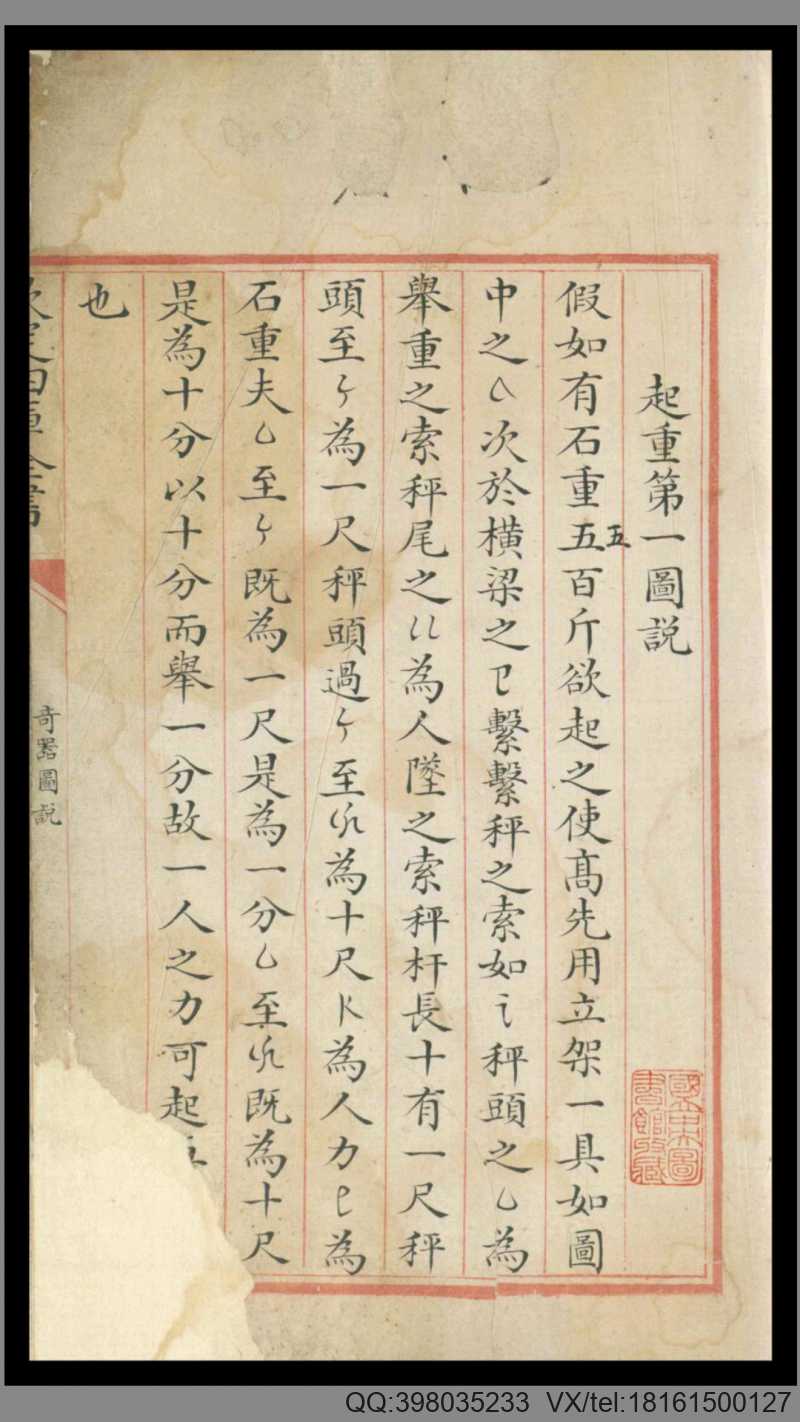 起重第一圖説
假如有石重五百斤欲起之使髙先用立架一具如圖
五
中之 次於横梁之 繫繫秤之索如 秤頭之 為
舉重之索秤尾之 為人墜之索秤杆長十有一尺秤
頭至 為一尺秤頭過 至 為十尺 為人力 為
石重夫 至 既為一尺是為一分 至 既為十尺
是為十分以十分而舉一分故一人之力可起
也
奇器圖説
國立中央圖
書館收藏
QQ:398035233 VX/tel:18161500127